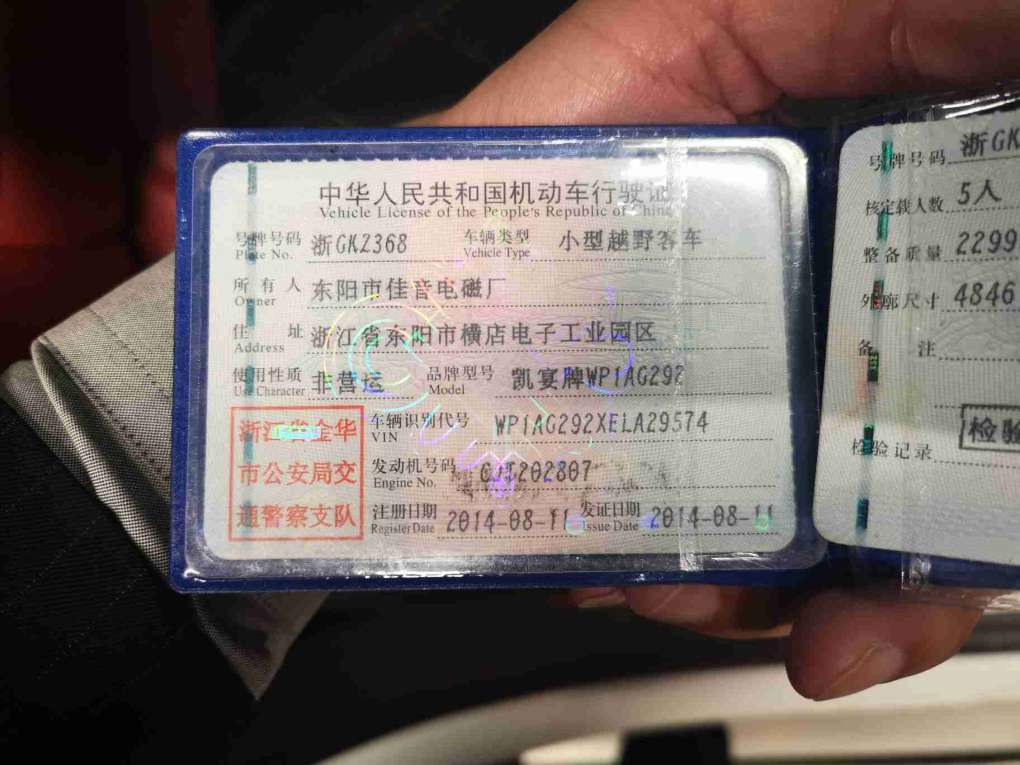 中华人民共和国机动车行驶证
Vehicle License of the People's Republic of China
号牌号码 浙GKZ368 车辆类型 小型越野客车
Plate No. Vehicle Type
所有人 东阳市佳音电磁厂
Owner
住址 浙江省东阳市横店电子工业园区
Address
使用性质 非营运 品牌型号 凯宴牌WP1AG292
Use Character Model
浙江省金华
市公安局交
通警察支队
车辆识别代号 WP1AG292XELA29574
VIN
发动机号码 CJT202807
Engine No.
注册日期 2014-08-11 发证日期 2014-08-11
Register Date Issue Date
号牌号码 浙GK
核定载人数 5人
整备质量 2299
外廓尺寸 4846
备注
检验
检验记录